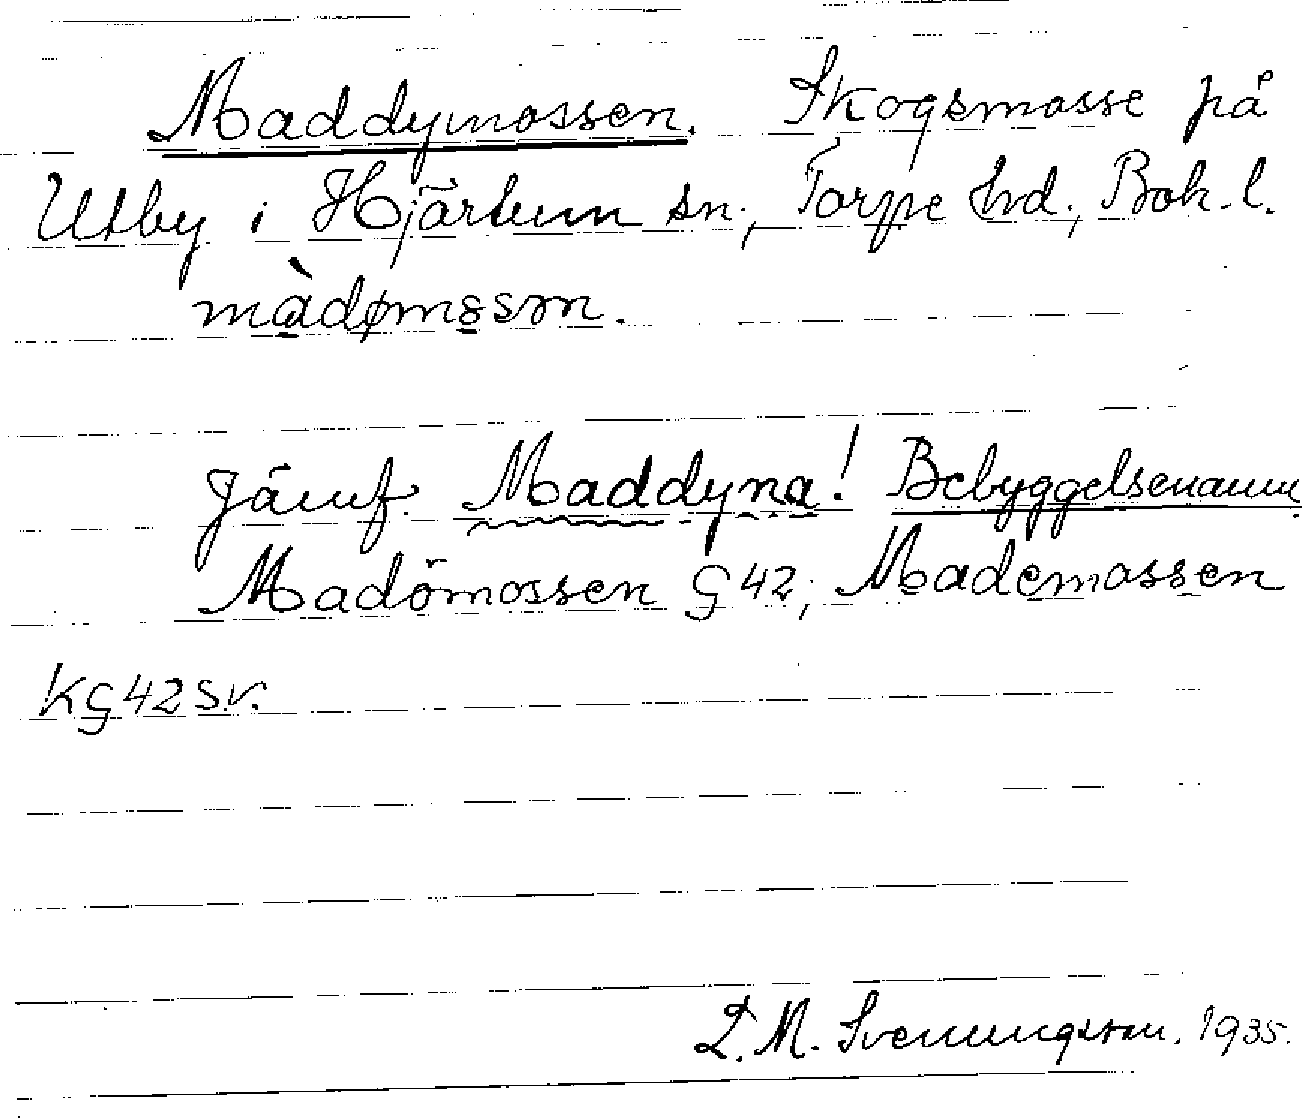 Maddymossen. Skogsmosse på
Utby i Hjärtum sn., Torpe hd., Boh. l.
màdømosən.
Jämf. Maddyna! Bebyggelsenamn
Madömossen G 42, Mademossen
KG 42 sv.
L. M. Svenungsson. 1935.